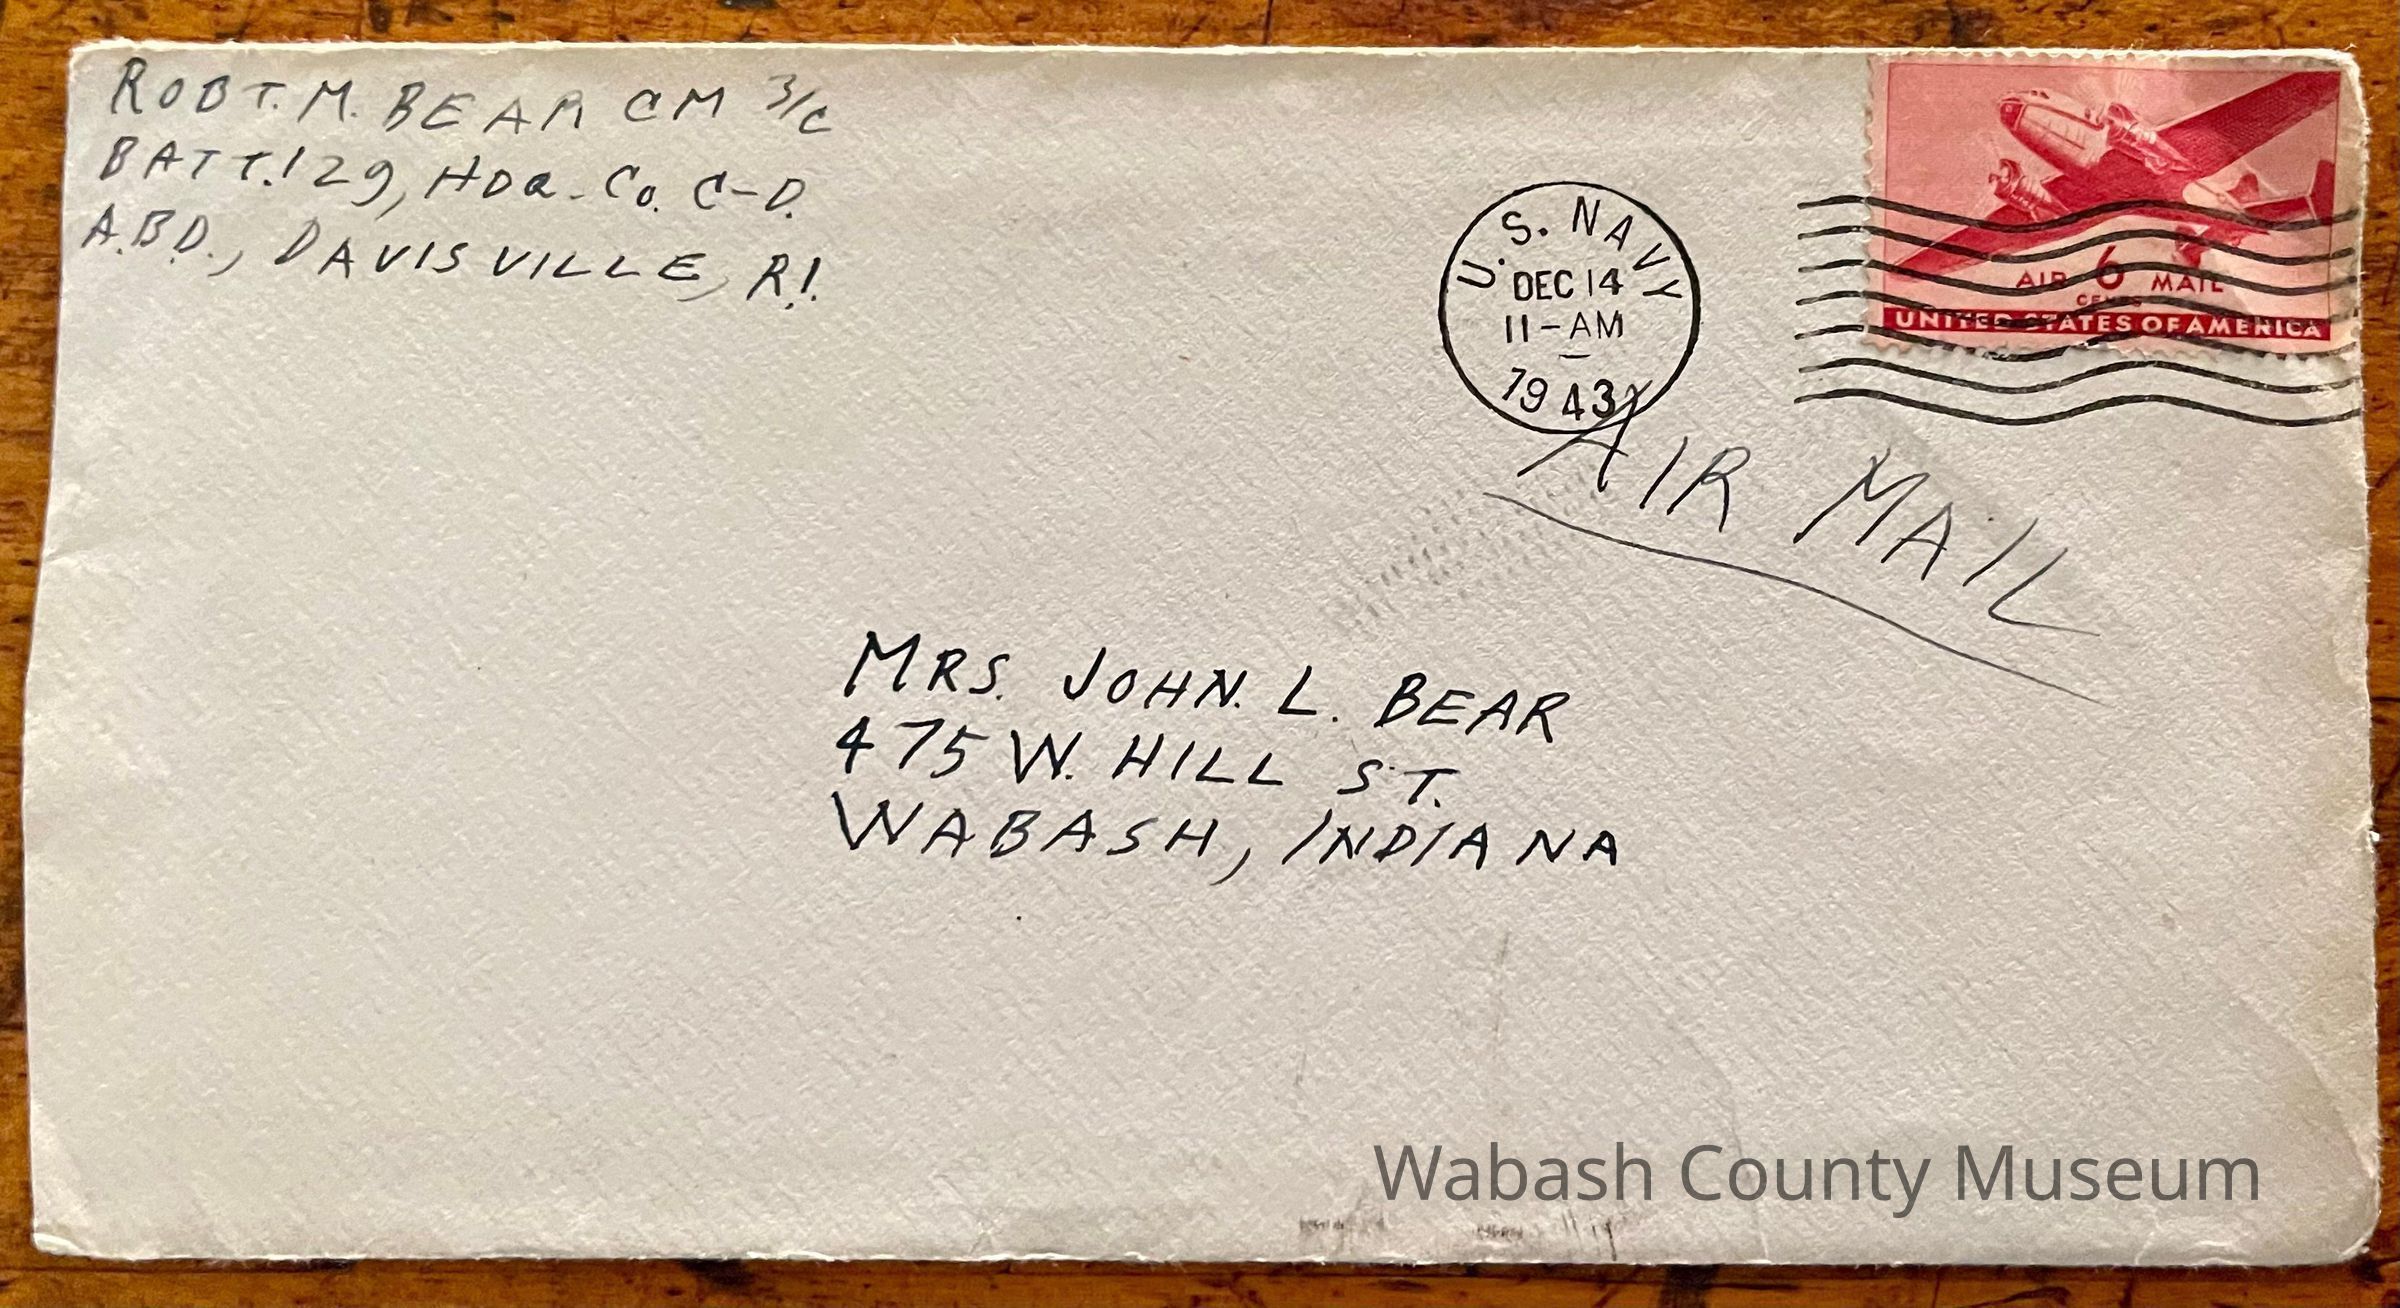 ROBT. M. BEAR CM 3/C
BATT. 129, HDQ. Co. C-D.
A.B.D., DAVISVILLE, R.I.
U.S. NAVY
DEC 14
11-AM
1943
AIR 6 MAIL
CENTS
UNITED STATES OF AMERICA
AIR MAIL
MRS. JOHN. L. BEAR
475 W. HILL ST.
WABASH, INDIANA
Wabash County Museum